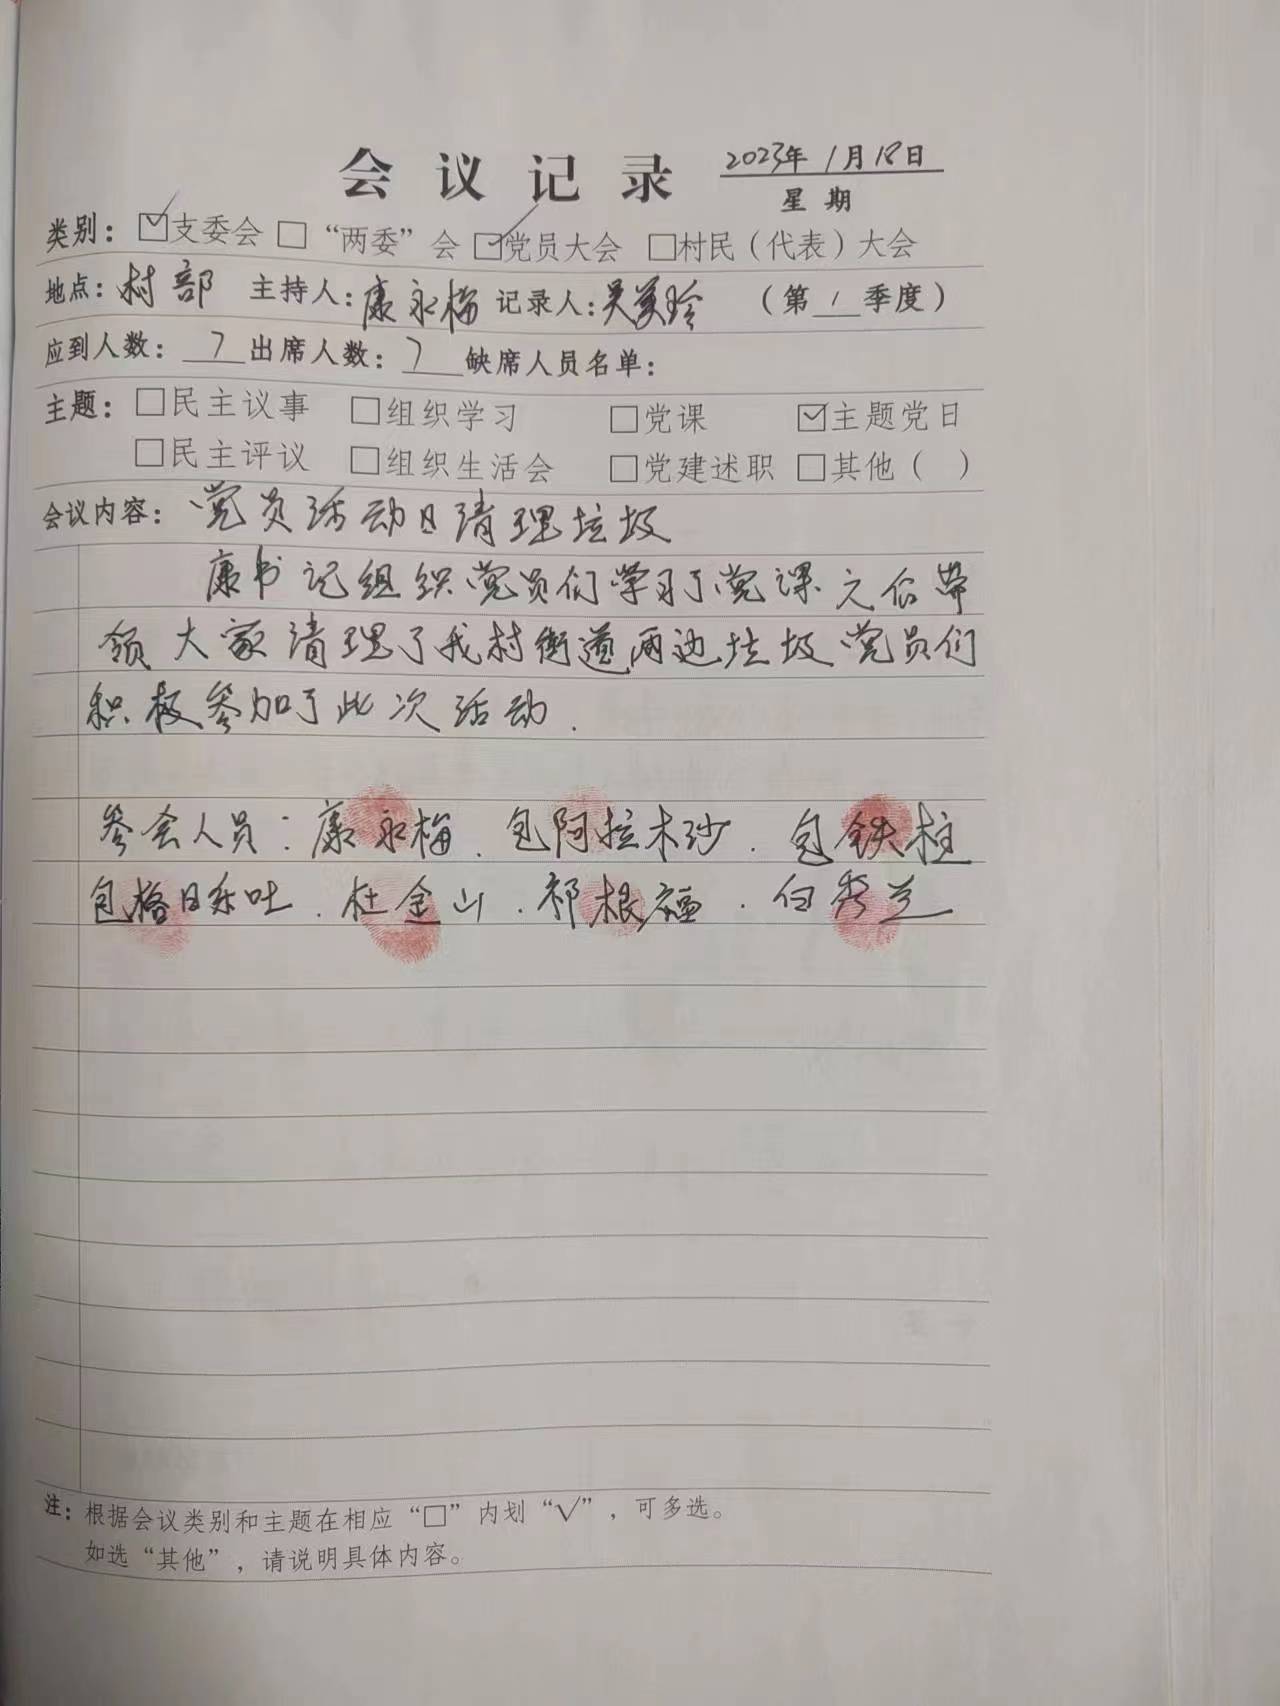 会议记录 2023年1月18日
星期
类别：☑支委会 □“两委”会 ☑党员大会 □村民（代表）大会
地点：村部 主持人：康永梅 记录人：吴美玲 （第1季度）
应到人数：7 出席人数：7 缺席人员名单：
主题：□民主议事 □组织学习 □党课 ☑主题党日
□民主评议 □组织生活会 □党建述职 □其他（ ）
会议内容：党员活动日清理垃圾
康书记组织党员们学习了党课 之后带
领大家清理了我村街道两边垃圾 党员们
积极参加了此次活动.
参会人员：康永梅.包阿拉木沙.包铁柱
包格日乐吐.杜金山.祁根福.白秀兰
注：根据会议类别和主题在相应“□”内划“√”，可多选。
如选“其他”，请说明具体内容。